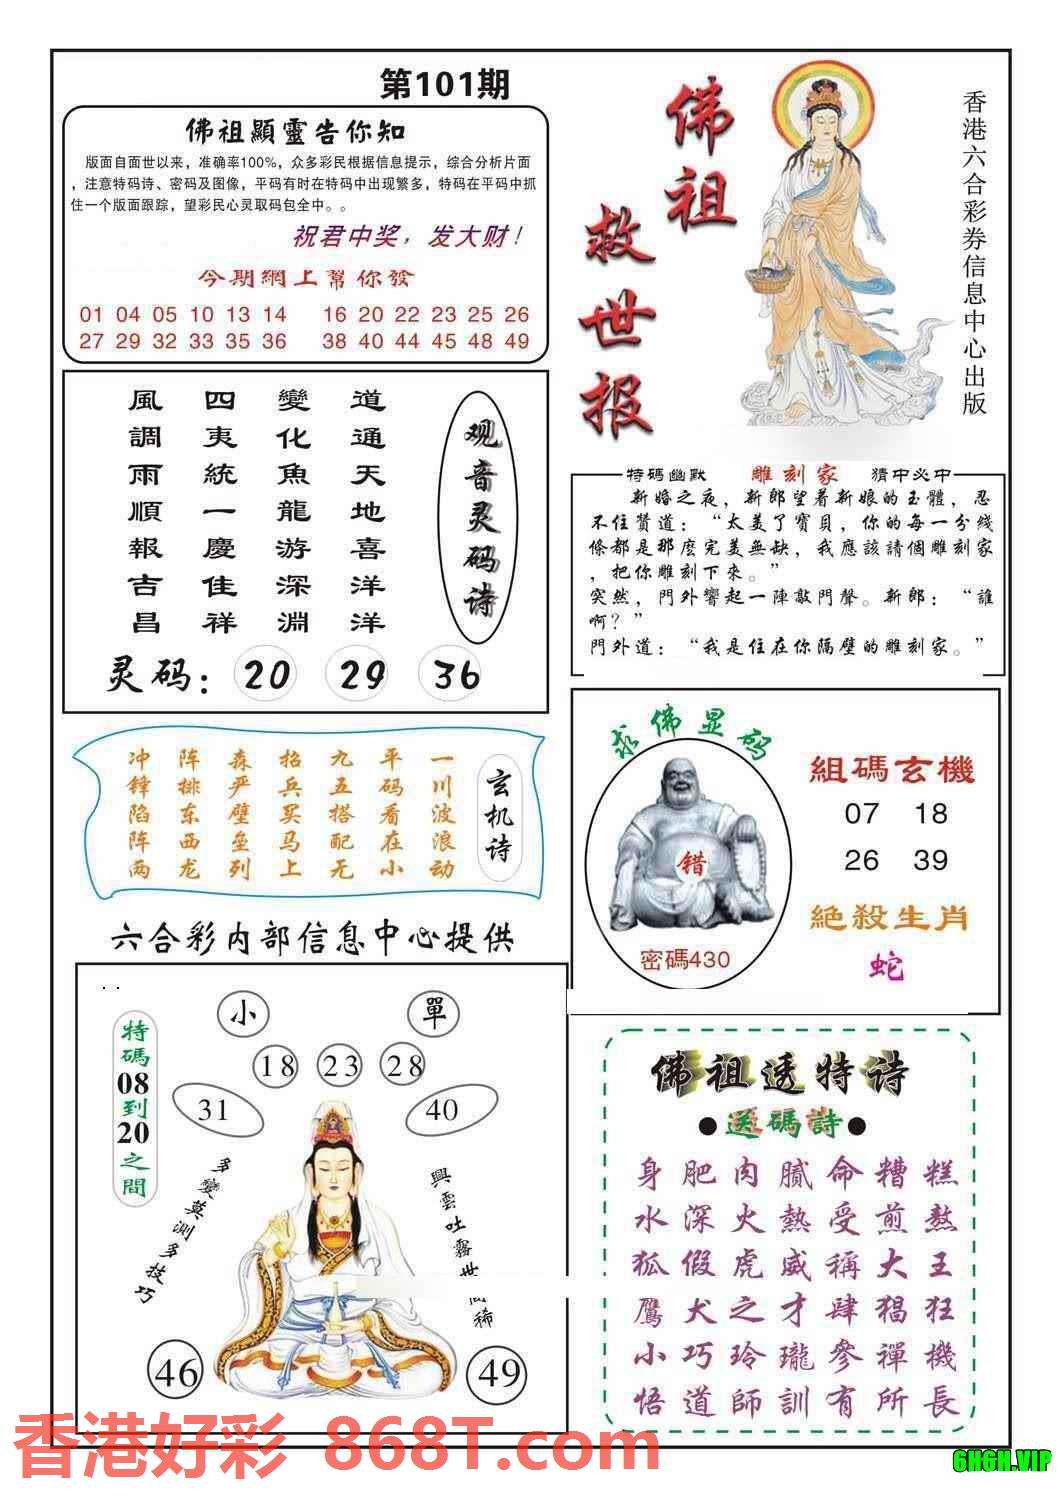 第101期
佛祖顯靈告你知
版面自面世以来，准确率100%，众多彩民根据信息提示，综合分析片面
，注意特码诗、密码及图像，平码有时在特码中出现繁多，特码在平码中抓
住一个版面跟踪，望彩民心灵取码包全中。。
祝君中奖，发大财！
今期網上幫你發
01 04 05 10 13 14 16 20 22 23 25 26
27 29 32 33 35 36 38 40 44 45 48 49
佛祖
救世报
香港六合彩券信息中心出版
观音灵码诗
道通天地喜洋洋
變化魚龍游深淵
四夷統一慶佳祥
風調雨順報吉昌
灵码：20 29 36
特碼幽默 雕刻家 猜中必中
新婚之夜，新郎望着新娘的玉體，忍
不住贊道：“太美了寶貝，你的每一分綫
條都是那麽完美無缺，我應該請個雕刻家
，把你雕刻下來。”
突然，門外響起一陣敲門聲。新郎：“誰
啊？”
門外道：“我是住在你隔壁的雕刻家。”
玄机诗
一川波浪动
平码看在小
九五搭配无
招兵买马上
森严壁垒列
阵排东西龙
冲锋陷阵两
求佛显码
错
密碼430
組碼玄機
07 18
26 39
絶殺生肖
蛇
六合彩内部信息中心提供
特碼08到20之間
小 單
18 23 28
31 40
多變莫測多技巧
興雲吐霧世稀
46 49
佛祖透特诗
●送碼詩●
身肥肉膩命糟糕
水深火熱受煎熬
狐假虎威稱大王
鷹犬之才肆猖狂
小巧玲瓏參禪機
悟道師訓有所長
香港好彩 868T.com
6H6H.VIP